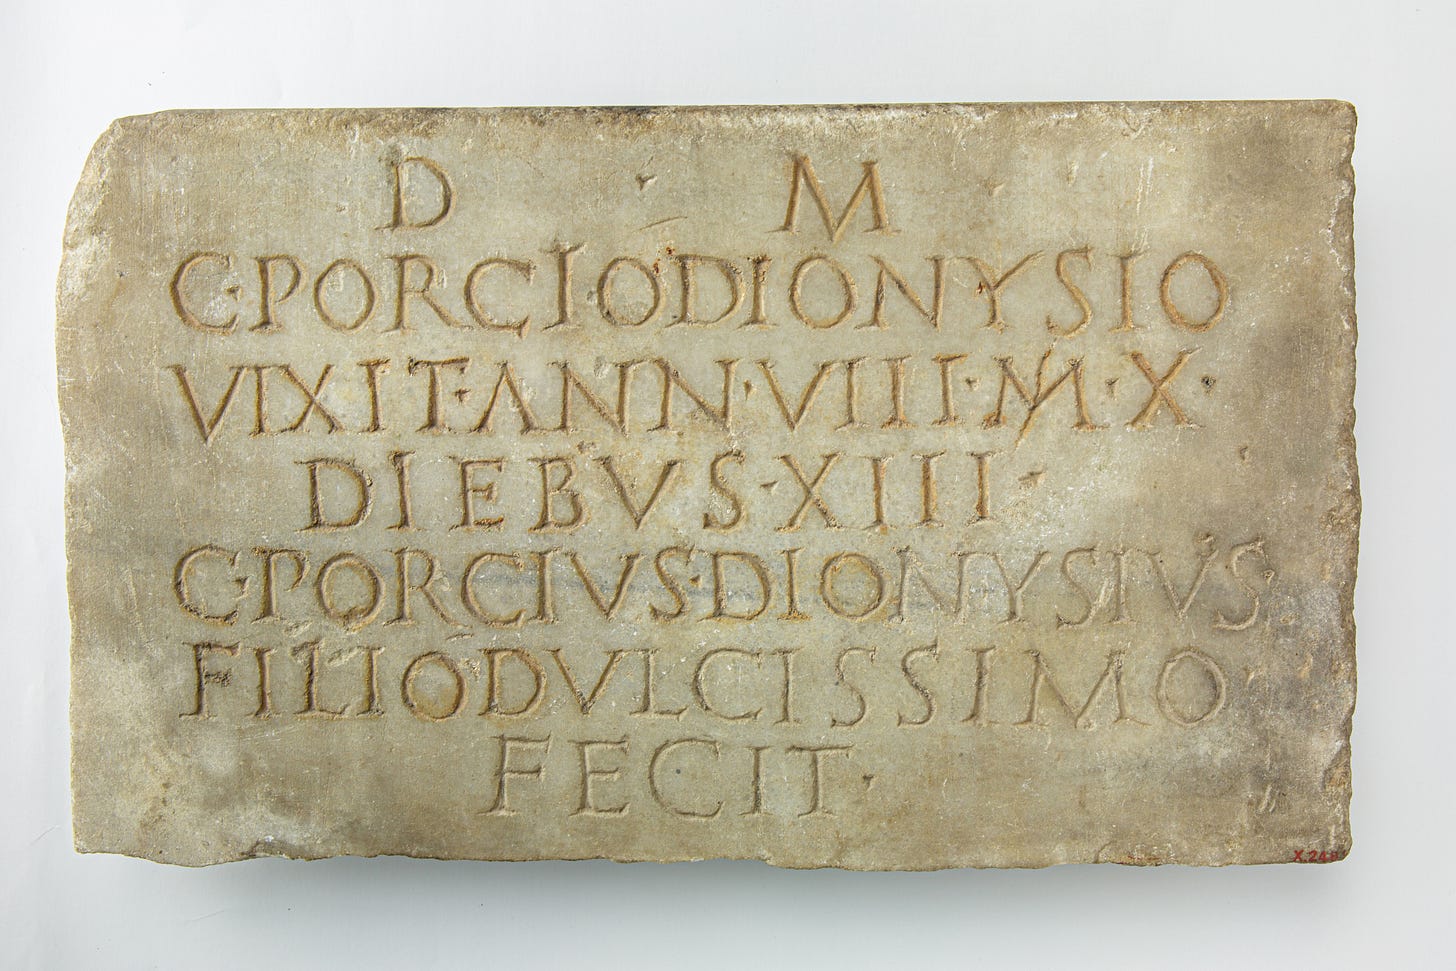 D · M
C·PORCIO·DIONYSIO
VIXIT·ANN·VIIII·M·X·
DIEBVS·XIII·
C·PORCIVS·DIONYSIVS
FILIO DVLCISSIMO
FECIT·